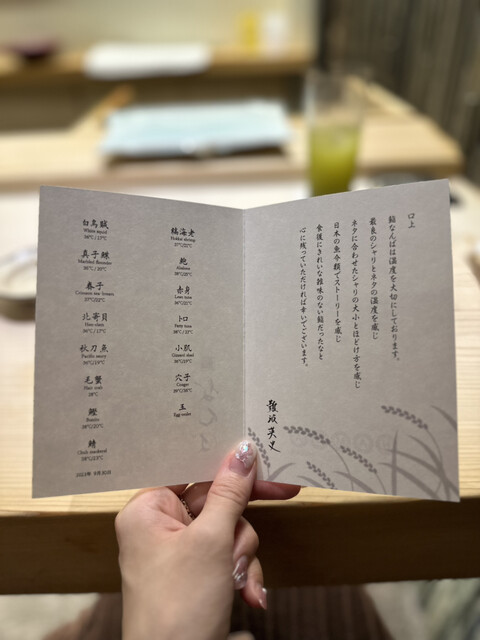 白烏賊
White squid
真子鰈
Marbled flounder
春子
Crimson sea bream
北寄貝
Hen-clam
秋刀魚
Pacific saury
毛蟹
Hair crab
38℃
鰹
Bonito
鯖
Chub mackerel
2023年 8月30日
縞海老
Hokkai shrimp
鮑
Abalone
赤身
Lean tuna
トロ
Fatty tuna
小肌
Gizzard shad
穴子
Conger
玉
口上
鮨なんばは温度を大切にしております。
最良のシャリとネタの温度を感じ
ネタに合わせたシャリの大小とほどけ方を感じ
日本の魚介類でストーリーを感じ
食後にきれいな雑味のない鮨だったなと
心に残っていただければ幸いでございます。
難波英史